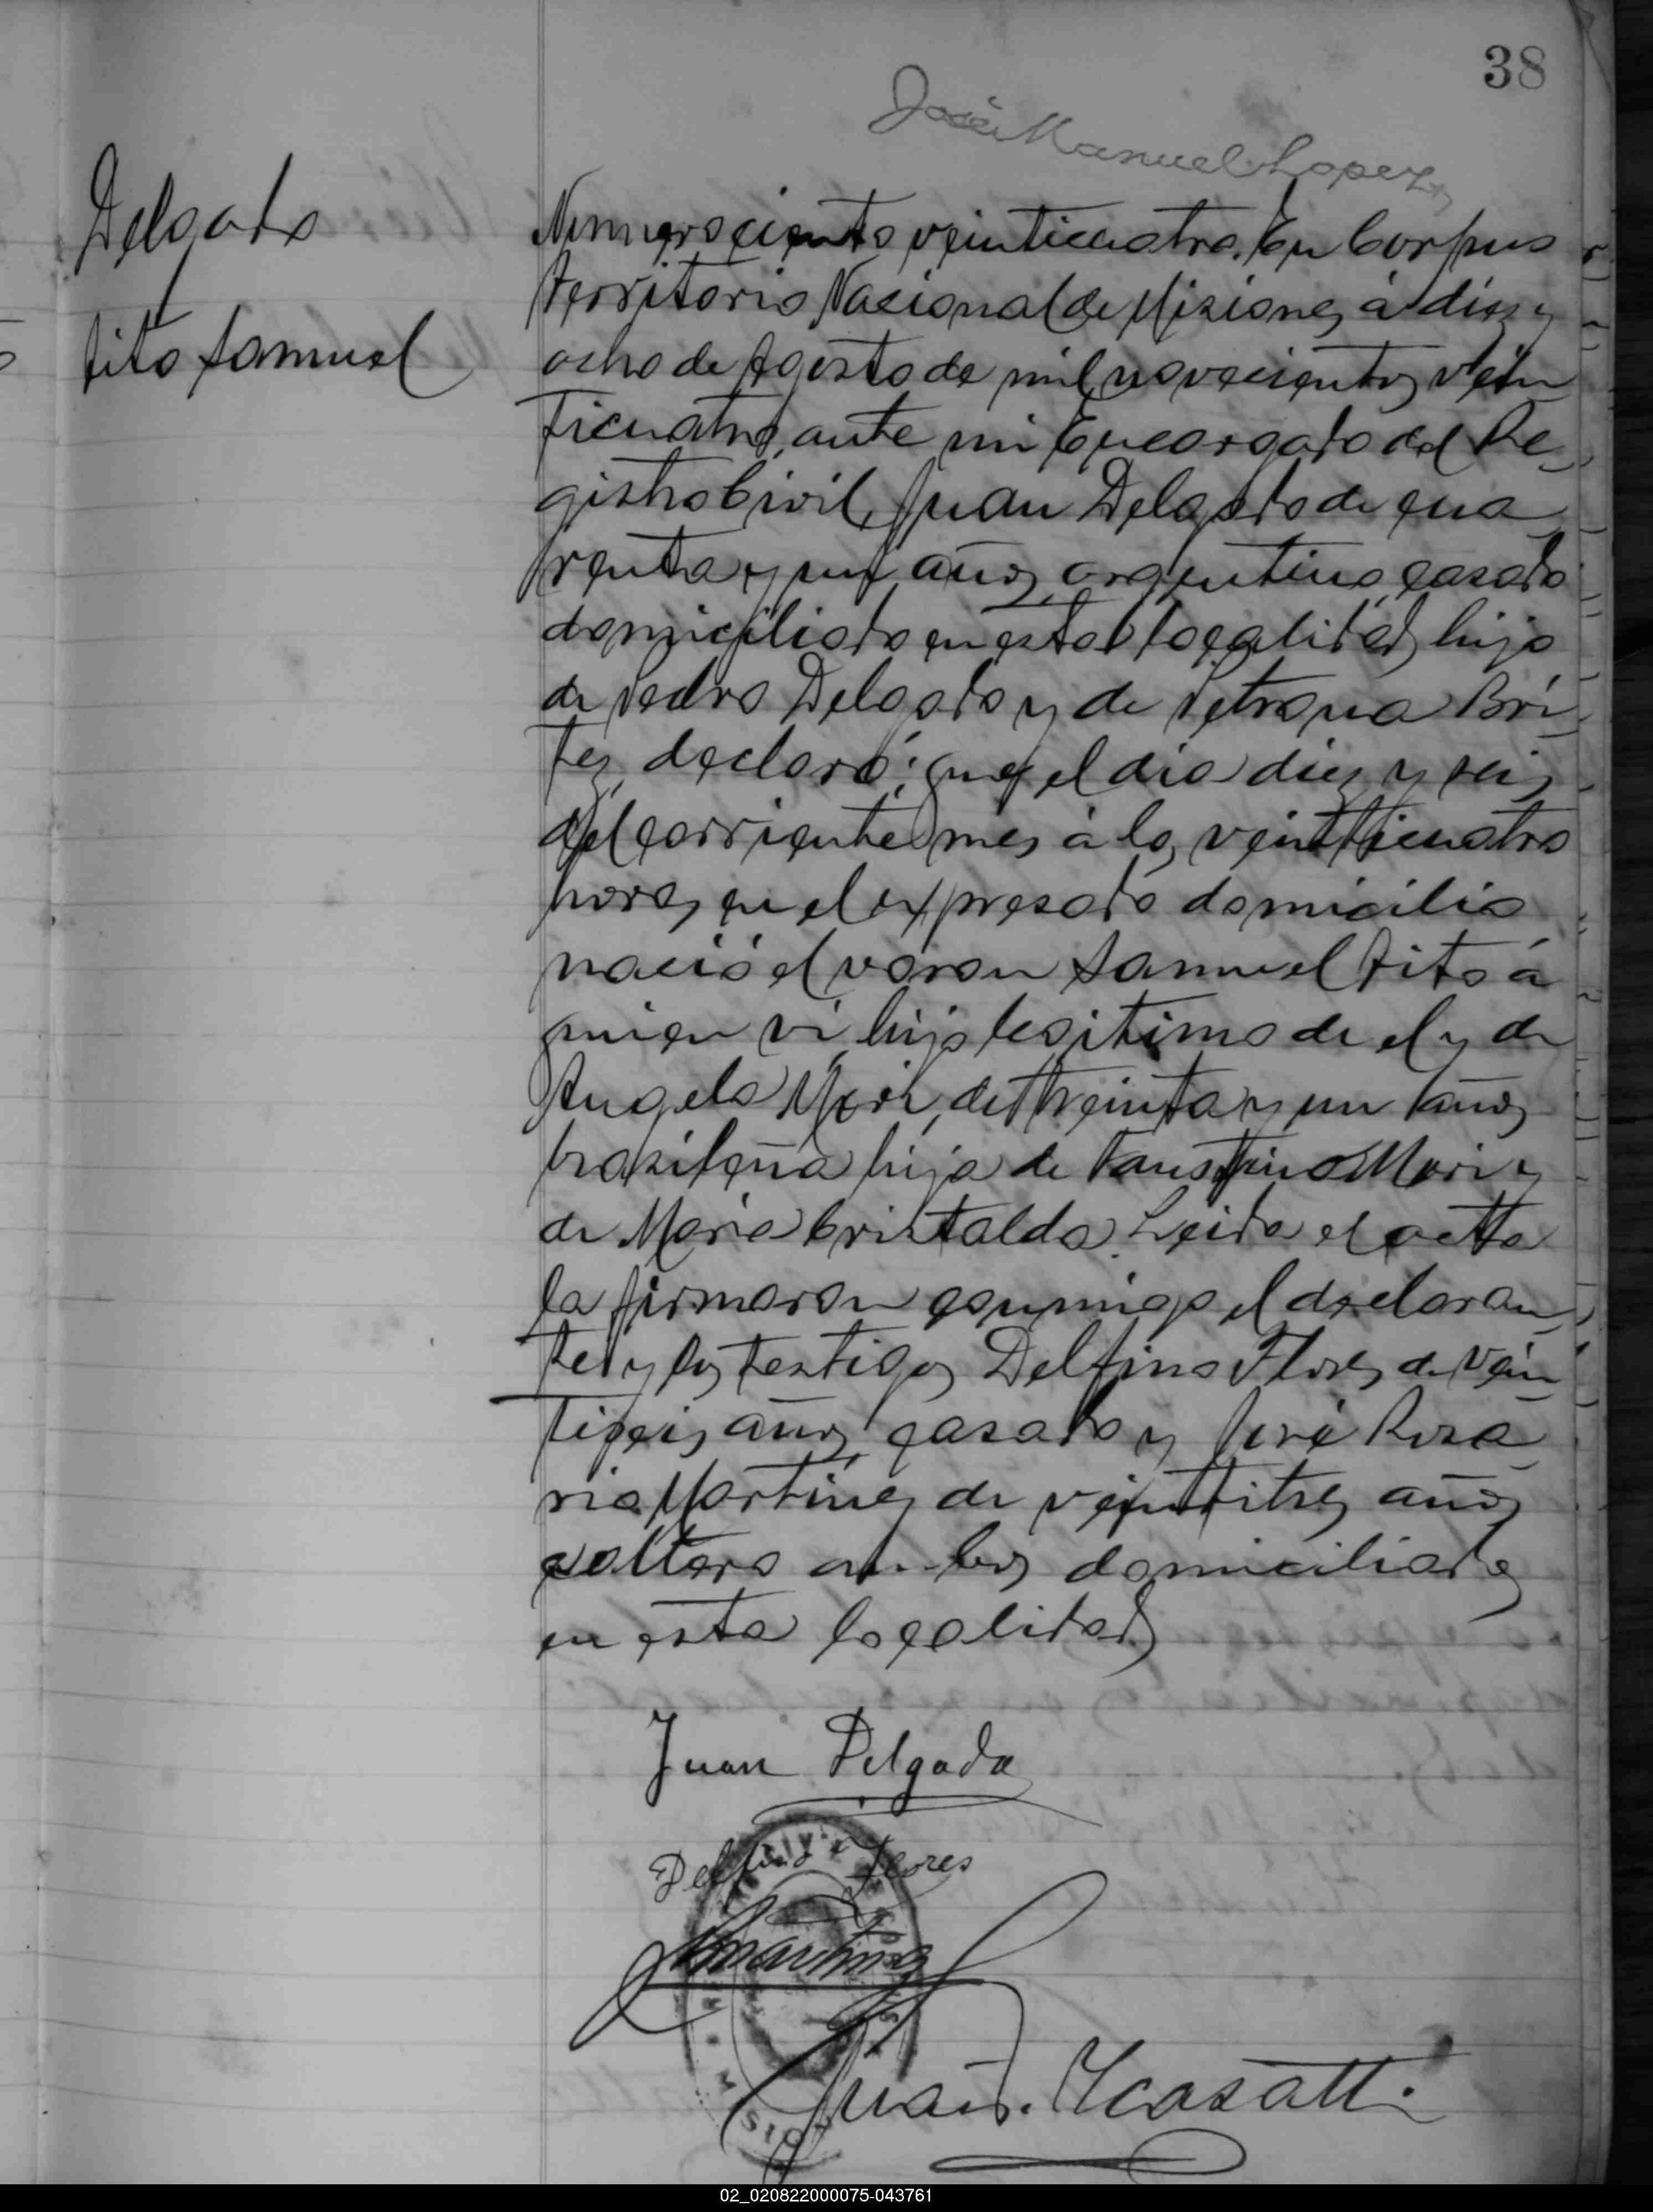 38
José Manuel Lopez
Delgado
Tito Samuel
Numero ciento veinticuatro. En Corpus
Territorio Nacional de Misiones á diez y
ocho de Agosto de mil novecientos vein
ticuatro, ante mi Encargado del Re-
gistro Civil, Juan Delgado de cua
renta y un años, argentino, casado
domiciliado en esta localidad, hijo
de Pedro Delgado y de Petrona Brí
tez, declaró: que el dia diez y seis
del corriente mes á las veinticuatro
horas en el expresado domicilio
nació el varon Samuel Tito á
quien ví, hijo legitimo de el y de
Angela Mori, de treinta y un años
brasileña hija de Faustino Mori y
de Maria Cristaldo. Leida el acta
la firmaron conmigo el declaran
te y los testigos Delfino Flores de vein
tiseis años, casado y José Rosa
rio Martinez de veintitres años
soltero ambos domiciliados
en esta localidad
Juan Delgado
Delfino Flores
Martinez
Juan